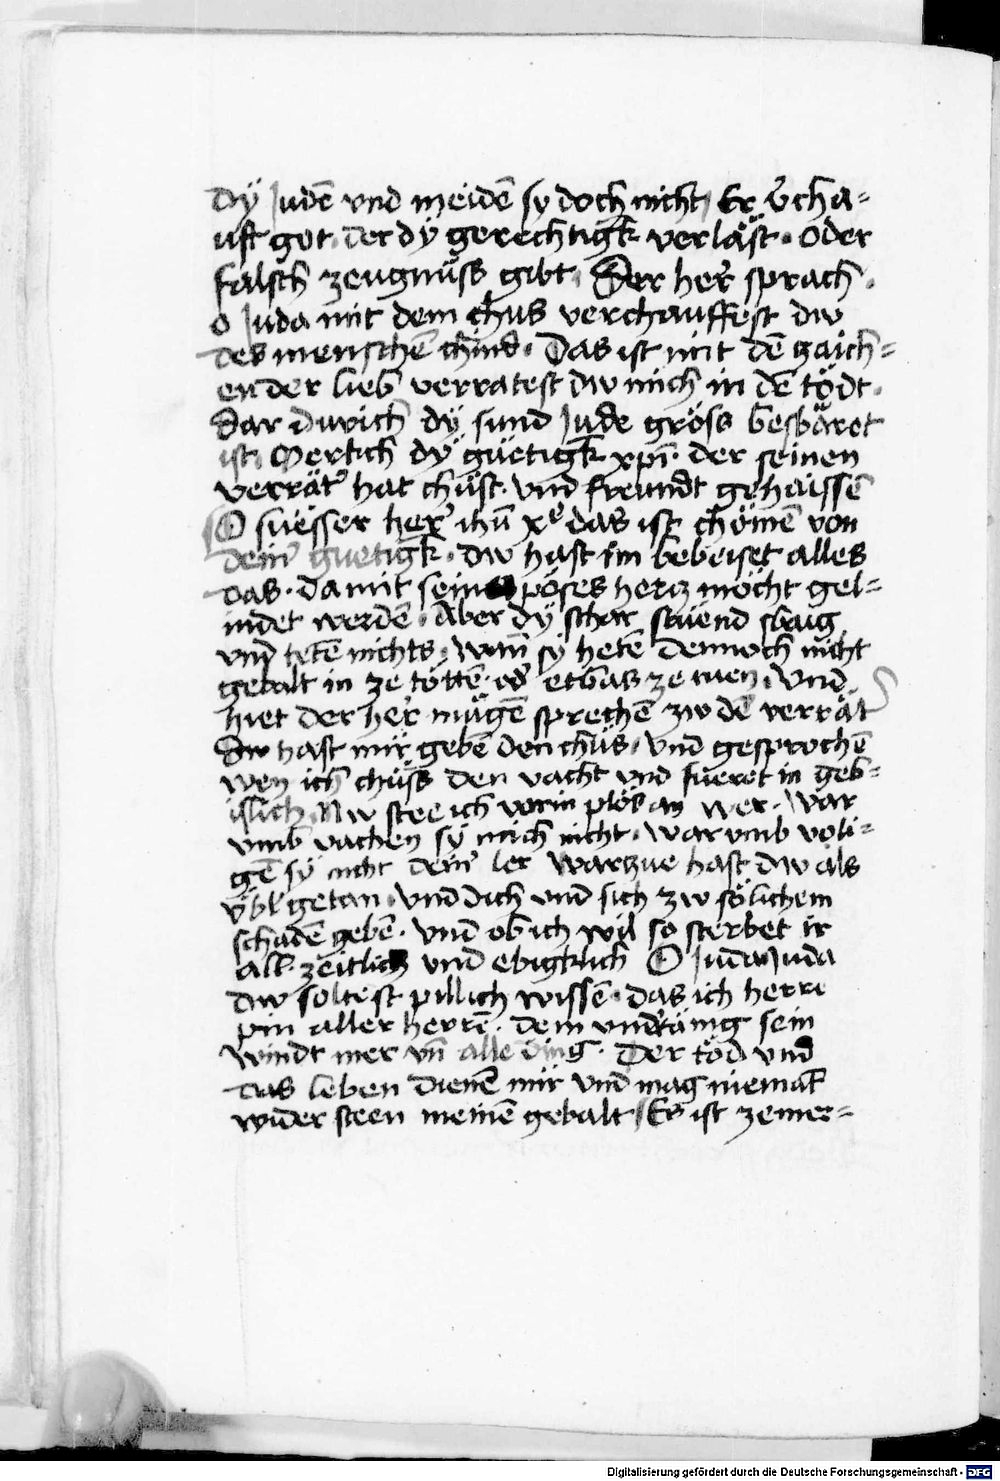 dÿ Judē vnd meidē sy doch nicht Er v̄cha=
uft got. der dÿ gerechtigk̄ verläst. oder
falsch zeugnüss gibt. Der her̄ sprach.
O Juda mit dem chus verchauffest dw
des menschē chind. Das ist mit dē zaich=
en der lieb verratest dw mich in dē tödt.
Dar durich dÿ sund Jude gröss besbäret
ist. Merkch dÿ güetigk̄ xp̄i. der seinen
verrät̄ hat chüst. vnd freundt gehaissē
O suesser her̄ ihū xe das ist chömē von
dein̄ guetigk̄. dw hast im bebeiset alles
das. damit sein pöses hercz möcht gel=
indet werdē. Aber dÿ schar stuend sbaig
vnd tetē nichts. wan̄ sÿ hetē dennoch nicht
gebalt in ze töttē. od̄ etbas ze tuen. Vnd
hiet der her̄ mügē sprechē zw dē verrät̄
Dw hast mir gebē den chüs. vnd gesprochē
wen ich chüss den vacht vnd fueret in geb=
islich. Nw stee ich vorin plös an wer. War
vmb vachen sÿ mich nicht. war vmb voli=
gē sÿ nicht dein̄ ler warzue hast dw als
übl getan. vnd dich vnd sich zw sölichem
schadē gebē. vnd ob ich wil so sterbet ir
all. zeitlich vnd ebigklich O Juda Juda
dw soltest pillich wissē. das ich herre
pin aller herrē. dem vnd̄tänig sein
windt mer vn̄ alle ding. Der töd vnd
das leben dienē mir vnd mag niemat̄
wider steen meinē gebalt Es ist zemer=
Digitalisierung gefördert durch die Deutsche Forschungsgemeinschaft - DFG